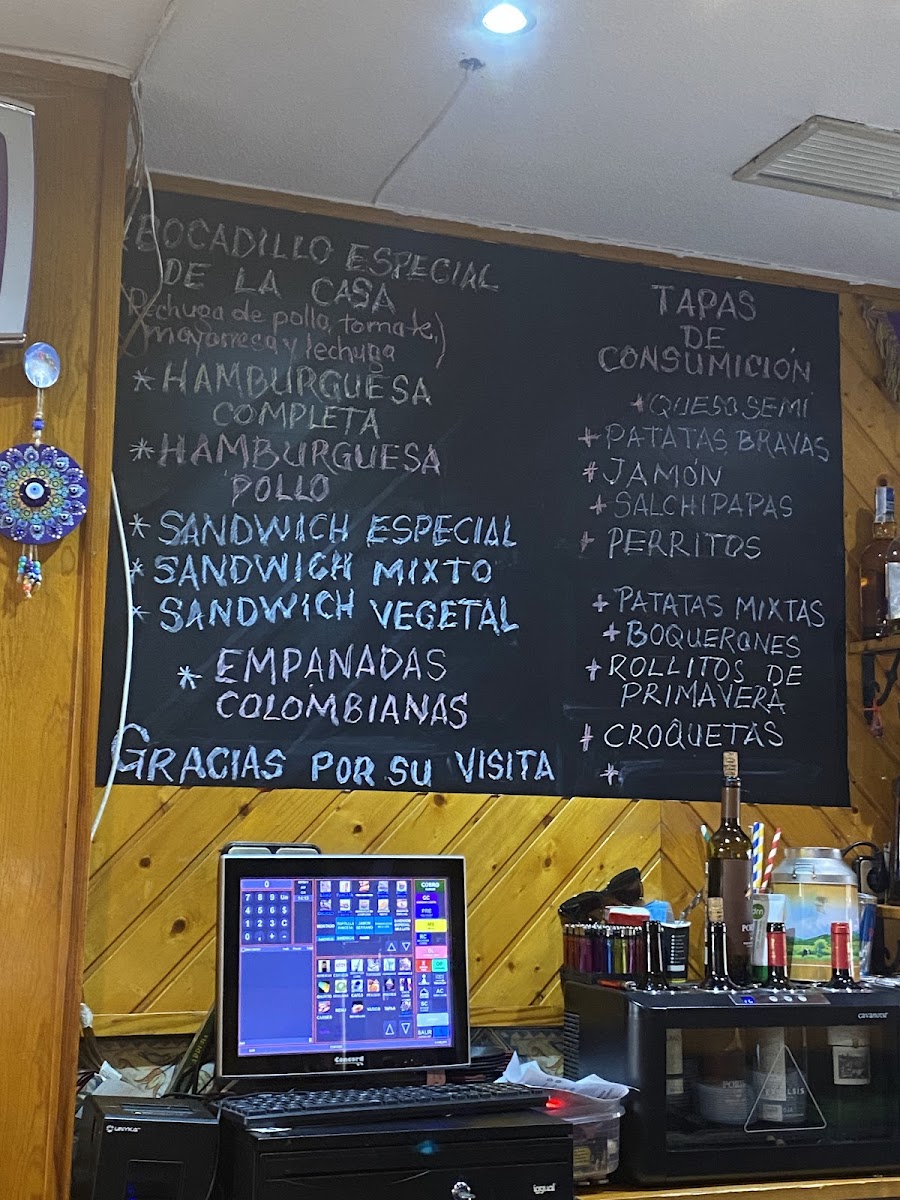 BOCADILLO ESPECIAL
DE LA CASA
(Pechuga de pollo, tomate,
mayonesa y lechuga)
* HAMBURGUESA
COMPLETA
* HAMBURGUESA
POLLO
* SANDWICH ESPECIAL
* SANDWICH MIXTO
* SANDWICH VEGETAL
* EMPANADAS
COLOMBIANAS
GRACIAS POR SU VISITA
TAPAS
DE
CONSUMICIÓN
* QUESO SEMI
* PATATAS BRAVAS
* JAMÓN
* SALCHIPAPAS
* PERRITOS
* PATATAS MIXTAS
* BOQUERONES
* ROLLITOS DE
PRIMAVERA
* CROQUETAS
*
COBRO
SALIR
7 8 9
4 5 6
1 2 3 C
Concord
UNYKA
iggual
cavanova